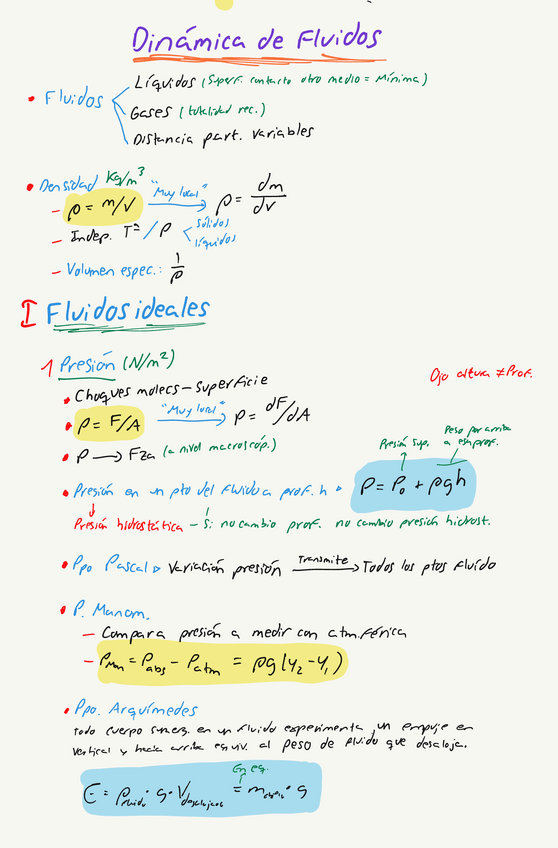 Dinámica de Fluidos
• Fluidos
Líquidos (Superf. contacto otro medio = Mínima)
Gases (totalidad rec.)
Distancia part. variables
• Densidad kg/m³
– ρ = m/V "Muy local" → ρ = dm/dV
– Indep. Tª / P < sólidos líquidos
– Volumen espec.: 1/ρ
I Fluidos ideales
1 Presión (N/m²)
Ojo altura ≠ Prof.
• Choques molecs – superficie
• P = F/A "Muy local" → P = dF/dA
• P → Fza (a nivel macroscóp.)
Presión Sup.
Peso por arriba a esa prof.
• Presión en un pto del fluido a prof. h ▹ P = P₀ + ρgh
Presión hidrostática – Si no cambio prof. no cambio presión hidrost.
• Ppo Pascal ▹ Variación presión Transmite → Todos los ptos fluido
• P. Manom.
– Compara presión a medir con atm.férica
– P_Man = P_abs – P_atm = ρg(y₂ – y₁)
• Ppo. Arquímedes
Todo cuerpo sumerg. en un fluido experimenta un empuje en
vertical y hacia arriba equiv. al peso de fluido que desaloja.
En eq.
E = ρ_fluido · g · V_desalojado = m_cuerpo · g